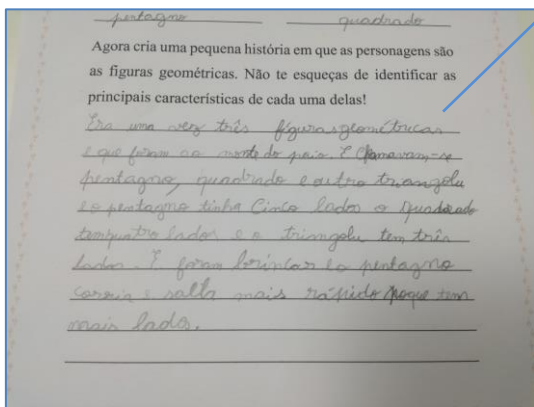 pentagno quadrado
Agora cria uma pequena história em que as personagens são
as figuras geométricas. Não te esqueças de identificar as
principais características de cada uma delas!
Era uma vez três figuras geométricas
e que foram ao monte do E chamavam-se
pentagno, quadrado e outro triangolu
e o pentagno tinha Cinco lados o quadrado
tem quatro lados e o triangolu tem três
lados. E foram brincar e o pentagno
corria e salta mais rápido poque tem
mais lados.